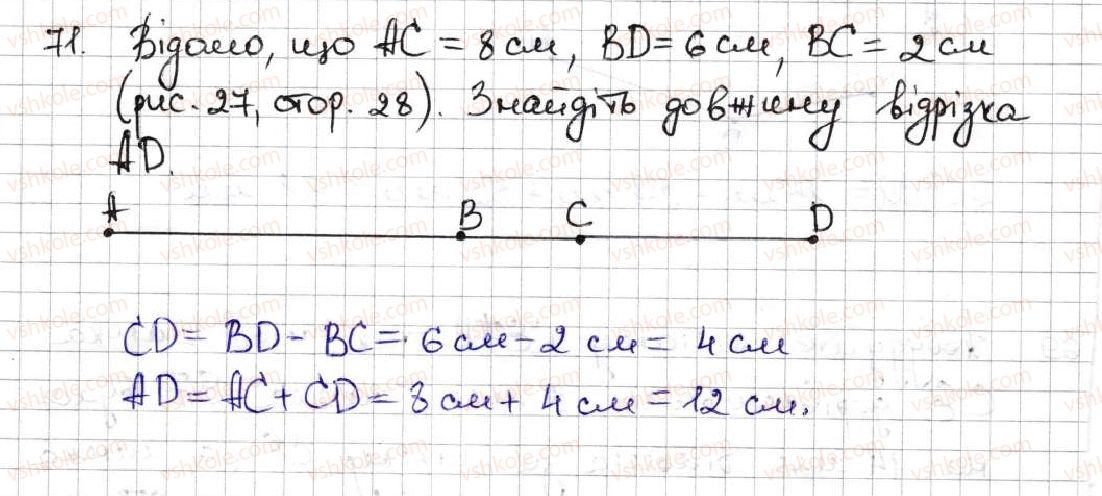 71. Відомо, що AC = 8 см, BD = 6 см, BC = 2 см
(рис. 27, стор. 28). Знайдіть довжину відрізка
AD.
A B C D
CD = BD - BC = 6 см - 2 см = 4 см
AD = AC + CD = 8 см + 4 см = 12 см.